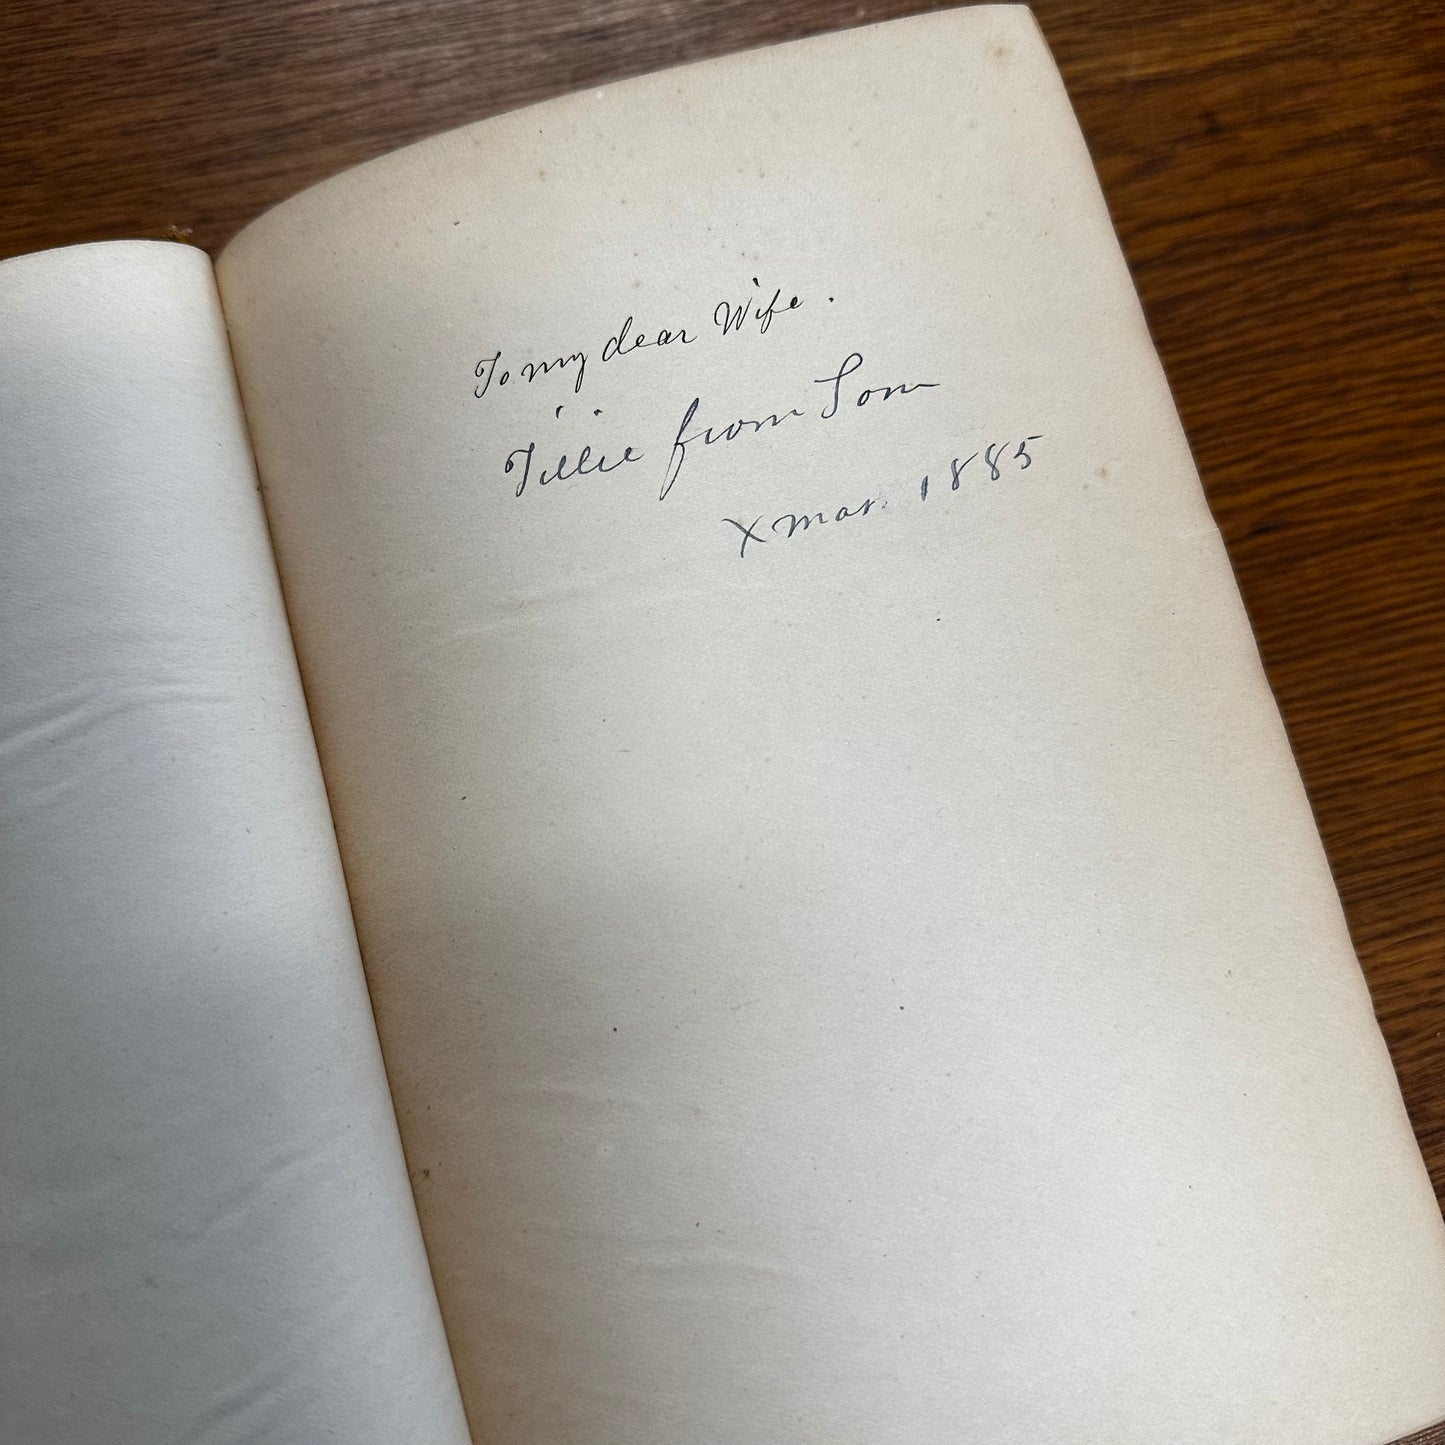 To my dear Wife.
Tillie from Tom
Xmas. 1885